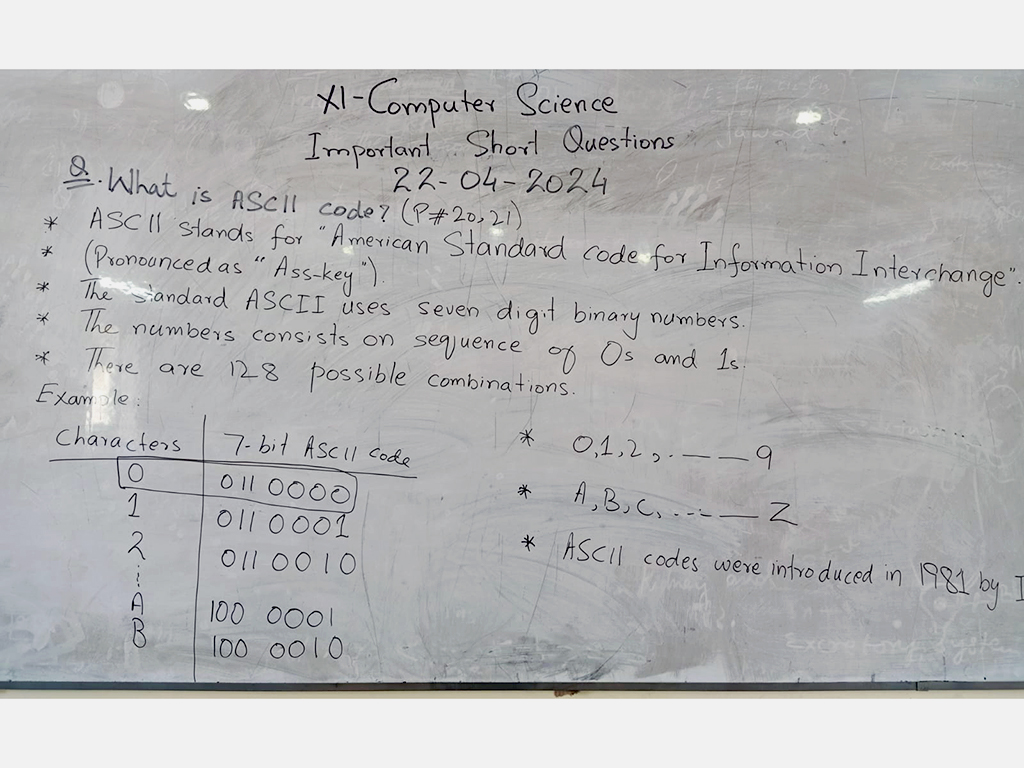 XI-Computer Science
Important Short Questions
22-04-2024
Q. What is ASCII code? (P#20,21)
* ASCII stands for "American Standard code for Information Interchange".
* (Pronounced as "Ass-key").
* The standard ASCII uses seven digit binary numbers.
* The numbers consists on sequence of 0s and 1s.
* There are 128 possible combinations.
Example:
Characters 7-bit ASCII code
0 011 0000
1 011 0001
2 011 0010
A 100 0001
B 100 0010
* 0,1,2,.——9
* A,B,C,...——Z
* ASCII codes were introduced in 1981 by I